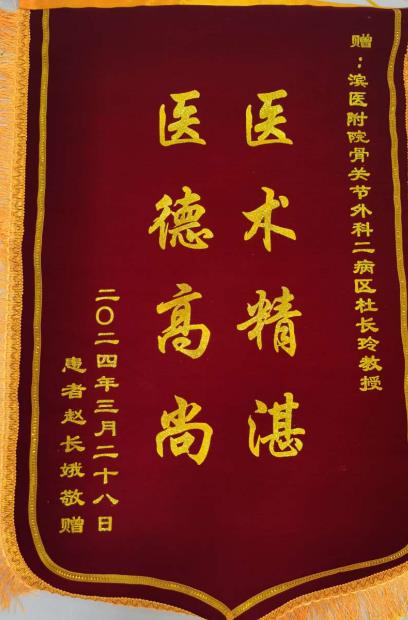 赠：滨医附院骨关节外科二病区杜长玲教授
医术精湛
医德高尚
二〇二四年三月二十八日
患者赵长娥敬赠